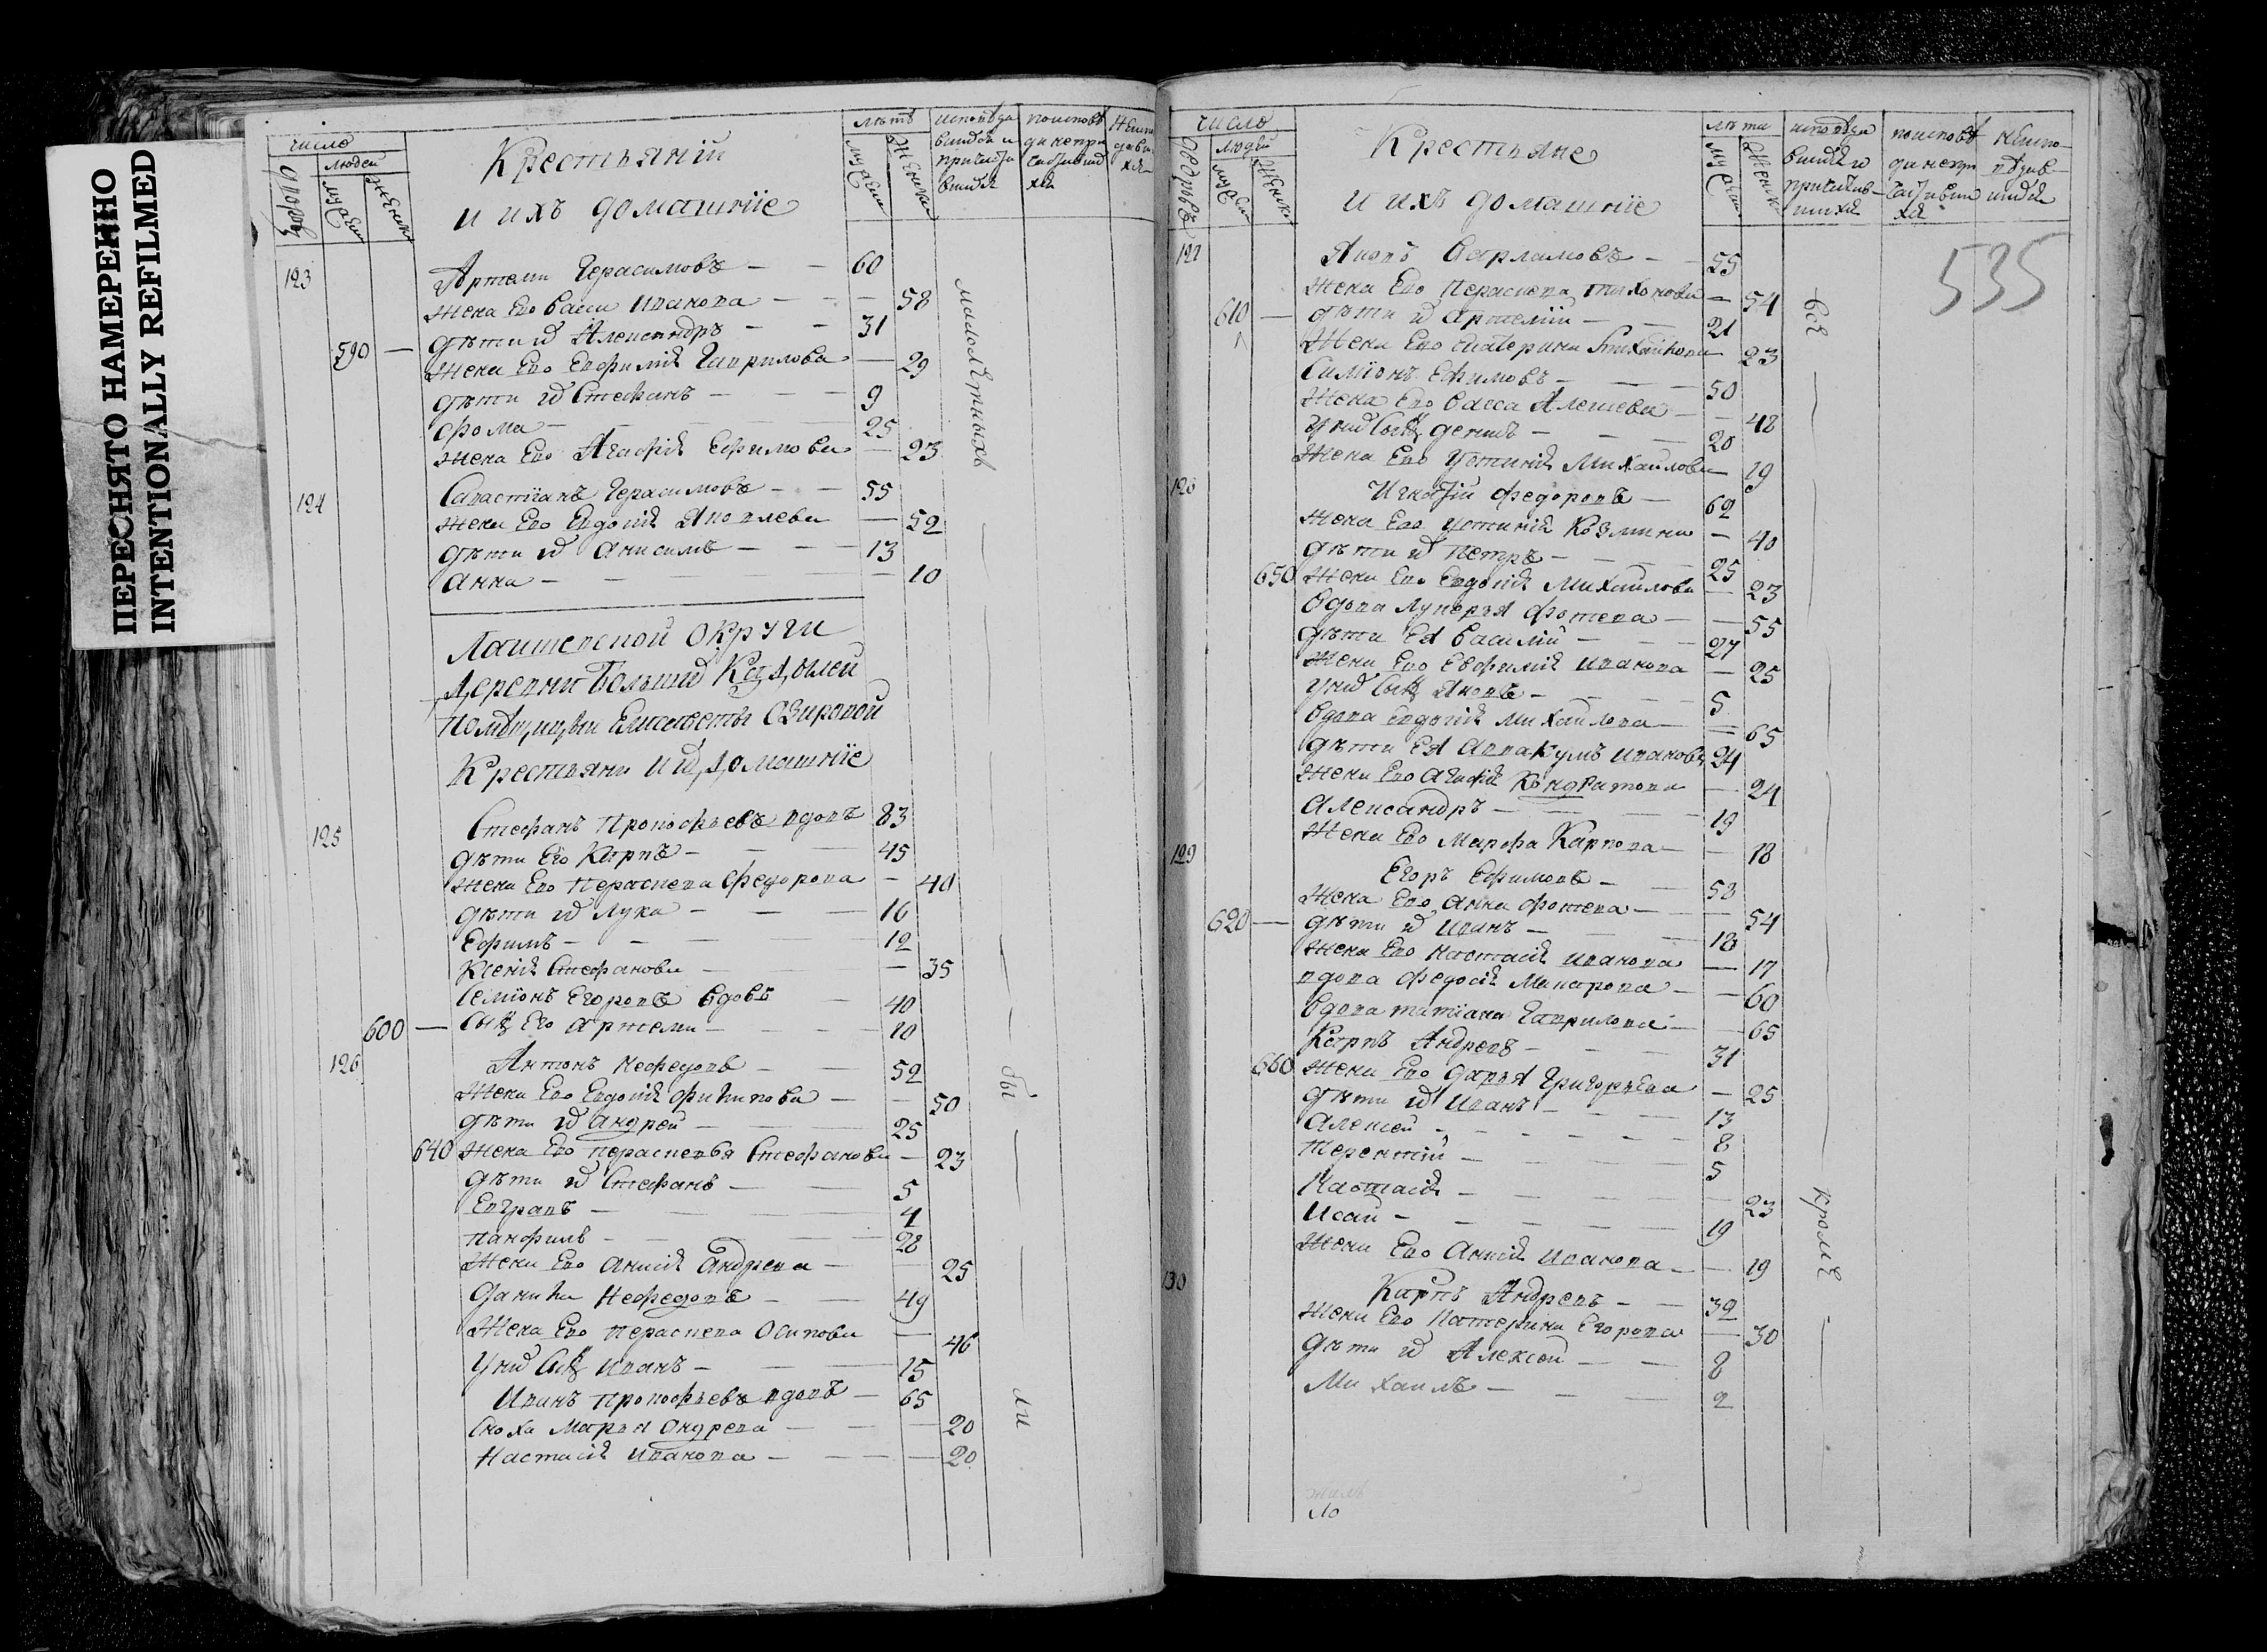 ПЕРЕСНЯТО НАМЕРЕННО
INTENTIONALLY REFILMED
число
дворовъ
людей
мужеск
женска
Крестьяніи
и ихъ домашніе
лѣтъ
мужеск
женска
123
Артеми Герасимовъ — — 60
Жена Его Васса Иванова — — 58
дѣти их Александръ — — 31
590 — Жена Его Евфимія Гаврилова — 29
дѣти их Стефанъ — — 9
Фома — 25
Жена Его Агафія Ефимова — 23
малолѣтныхъ
124
Савастіанъ Герасимовъ — — 55
Жена Его Евдокія Яковлева — 52
дѣти их Анисимъ — — 13
Анна — — 10
Лаишевской округи
деревни Большихъ Кабылей
помѣщицы Елисаветы
Крестьяни и их домашніе
125
Стефанъ Прокофьевъ вдовъ 83
дѣти Его Карпъ — — 45
Жена Его Параскева Федорова — 40
дѣти их Лука — — 16
Ефимъ — — 12
Ксенія Стефанова — — 35
Семіонъ Егоровъ вдовъ — 40
600 — сынъ Его Артеми — — 10
126
Антонъ Нефедовъ — — 52
Жена Его Евдокія Филипова — — 50
дѣти их Андрей — — 25
640 Жена Его Параскевья Стефанова — 23
дѣти их Стефанъ — — 5
Евграфъ — — 4
Панфилъ — — 28
Жена Его Анисія Андрева — 25
Данила Нефедовъ — — 49
Жена Его Параскева Осипова — 46
У них сынъ Иванъ — — 15
Иванъ Прокофьевъ вдовъ — 65
Сноха Марья Андрева — — 20
Настасія Иванова — — 20
бы
ли
число
дворовъ
людей
мужеск
женска
Крестьяне
и ихъ домашніе
лѣта
мужеска
женска
535
127
Яковъ Варламовъ — — 55
Жена Его Параскева Тихонова — 54
610 — дѣти их Артеміи — — 21
Жена Его Екатерина — 23
Симіонъ Ефимовъ — — 50
Жена Его Васса Алексева — — 48
У них сынъ Денисъ — — 20
Жена Его Устинія Михайлова — 19
всѣ
128
Игнатій Федоровъ — 62
Жена Его Устинія Козмина — 40
дѣти их Петръ — — 25
650 Жена Его Евдокія Михайлова — 23
Вдова Лукерья Фотева — — 55
дѣти Ея Василій — — 27
Жена Его Евфимія Иванова — 25
У них сынъ Яковъ — — 5
Вдова Евдокія Михайлова — 65
дѣти Ея Аввакумъ Ивановъ 24
Жена Его Агафія Кондратова — 24
Александръ — — 19
Жена Его Марфа Карпова — — 18
129
Егоръ Ефимовъ — — 58
Жена Его Анна Фотева — — 54
620 — дѣти их Иванъ — — 18
Жена Его Настасія Иванова — 17
вдова Федосія Макарова — — 60
Вдова Татіана Гаврилова — — 65
Карпъ Андревъ — — 31
660 Жена Его Дарья Григорьева — 25
дѣти их Иванъ — — 13
Алексеи — — 8
Терентій — — 5
Настасія — — 23
Исаи — — 19
Жена Его Анисія Иванова — 19
кромѣ
130
Карпъ Андревъ — — 32
Жена Его Катерина Егорова — 30
дѣти их Алексеи — — 8
Михаилъ — — 2